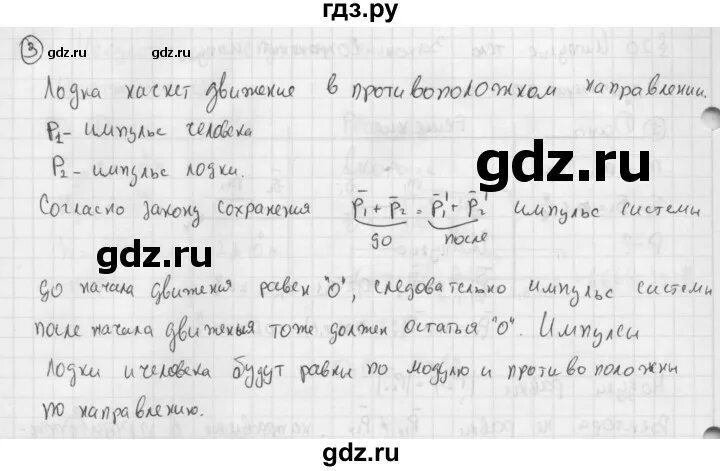 гдз.ру
③ gdz.ru gdz.ru
Лодка начнет движение в противоположном направлении.
P₁ - импульс человека
P₂ - импульс лодки. gdz.ru
Согласно закону сохранения P̄₁ + P̄₂ = P̄₁' + P̄₂' импульс системы
до после
gdz.ru
до начала движения равен "0", следовательно импульс системы
после начала движения тоже должен остаться "0". Импульсы
лодки и человека будут равны по модулю и противоположны
по направлению.
gdz.ru gdz.ru